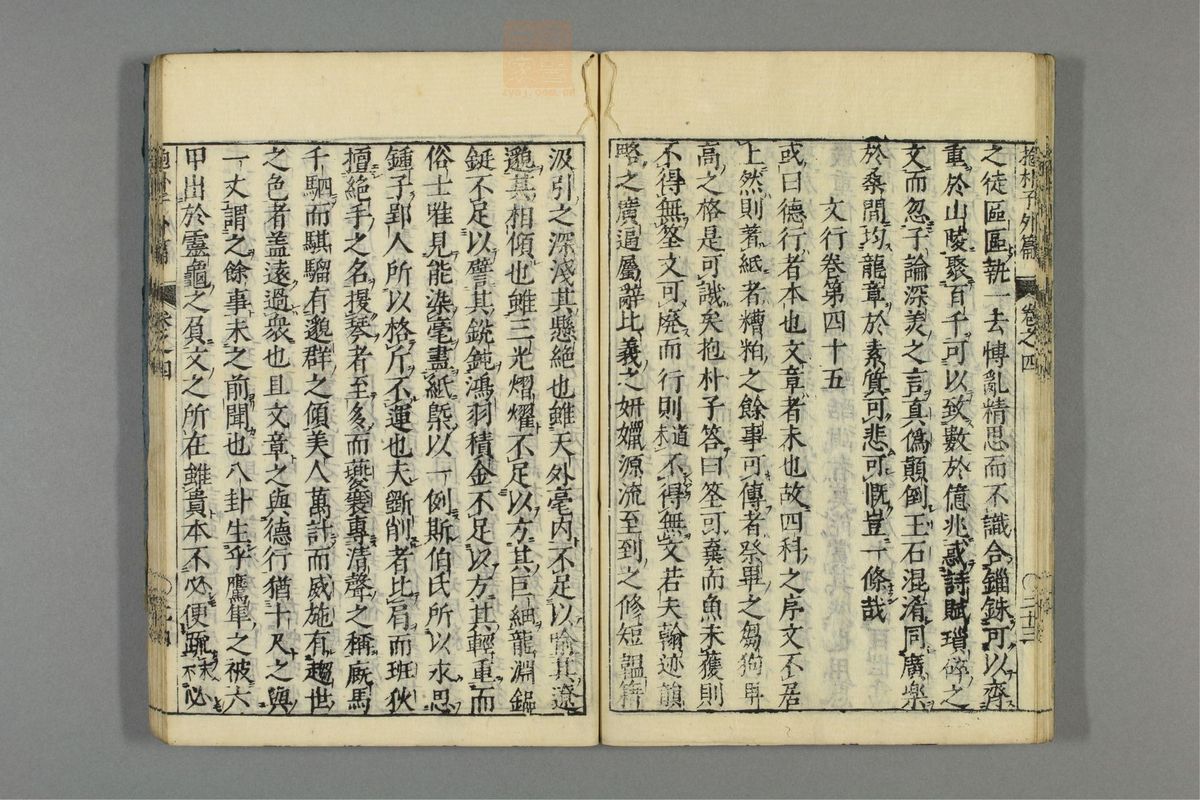 抱朴子外篇 卷之四 二十三
之徒區區執一去博亂精思而不識合錙銖可以齊
重於山陵聚百千可以致數於億兆惑詩賦瑣碎之
文而忽子論深美之言真僞顛倒王石混淆同廣樂
於桑間均龍章於素質可悲可慨豈一條哉
文行卷第四十五
或曰德行者本也文章者末也故四科之序文不居
上然則著紙者糟粕之餘事可傳者祭畢之芻狗卑
高之格是可譏矣抱朴子答曰筌可棄而魚未獲則
不得無筌文可廢而行則道未不得無文若夫翰迹韻
略之廣逼屬辭比義之妍媸源流至到之修短韞籍
汲引之深淺其懸絶也雖天外毫內不足以喻其遼
邈其相傾也雖三光熠燿不足以方其巨細龍淵鉛
鋌不足以譬其銳鈍鴻羽積金不足以方其輕重而
俗士唯見能染毫畫紙槩以一例斯伯氏所以永思
鍾子郢人所以格斤不運也夫斵削者比肩而班狄
擅絶手之名援琴者至多而夔襄專清聲之稱廐馬
千駟而騏驑有邈群之價美人萬計而威施有超世
之色者蓋遠過衆也且文章之與德行猶十尺之與
一丈謂之餘事未之前聞也八卦生乎鷹隼之被六
甲出於靈龜之負文之所在雖貴本不必便疏末不必